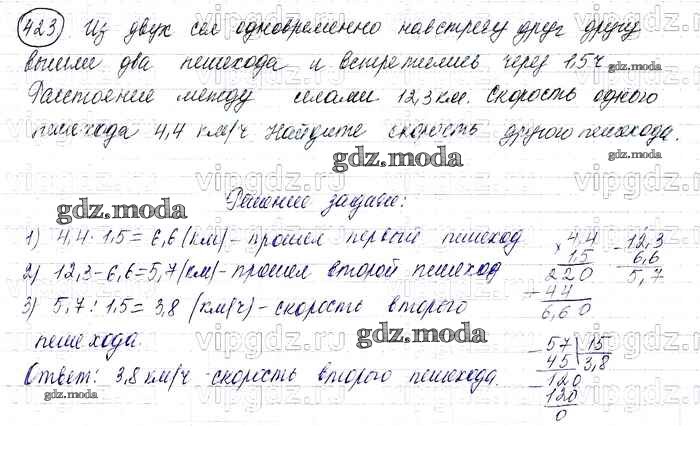 423 Из двух сел одновременно навстречу друг другу
вышли два пешехода и встретились через 1,5ч
gdz.moda
Расстояние между селами 12,3км. Скорость одного
пешехода 4,4 км/ч Найдите скорость другого пешехода.
gdz.moda
gdz.moda
Решение задачи:
gdz.moda
1) 4,4·1,5=6,6(км)-прошел первый пешеход
2) 12,3-6,6=5,7(км)-прошел второй пешеход
3) 5,7:1,5=3,8 (км/ч)-скорость второго
пешехода.
gdz.moda
Ответ: 3,8км/ч-скорость второго пешехода.
gdz.moda
gdz.moda
× 4,4
1,5
220
+ 44
6,60
- 12,3
6,6
5,7
- 57 15
45 3,8
- 120
120
0
vipgdz.ru